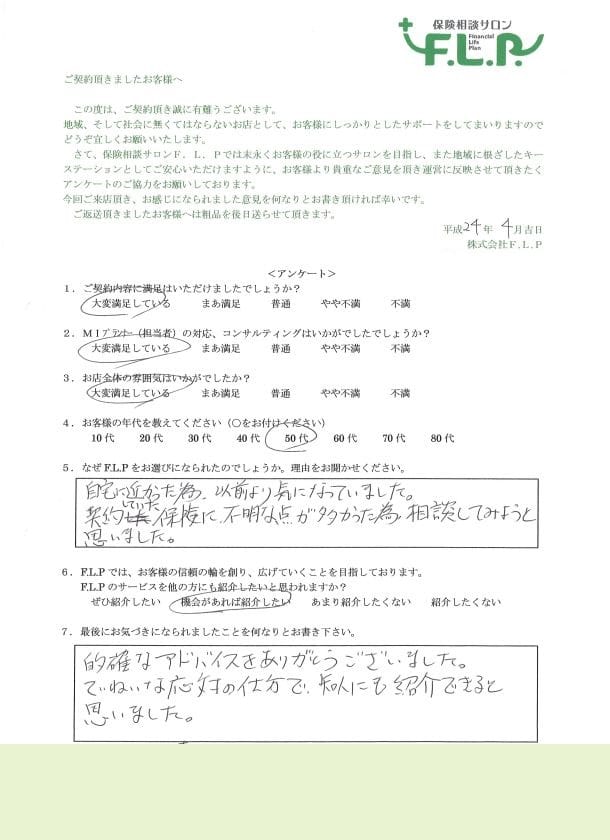 保険相談サロン
F.L.P.
Financial
Life
Plan
ご契約頂きましたお客様へ
この度は、ご契約頂き誠に有難うございます。
地域、そして社会に無くてはならないお店として、お客様にしっかりとしたサポートをしてまいりますので
どうぞ宜しくお願いいたします。
さて、保険相談サロンF．L．Pでは末永くお客様の役に立つサロンを目指し、また地域に根ざしたキー
ステーションとしてご安心いただけますように、お客様より貴重なご意見を頂き運営に反映させて頂きたく
アンケートのご協力をお願いしております。
今回ご来店頂き、お感じになられました意見を何なりとお書き頂ければ幸いです。
ご返送頂きましたお客様へは粗品を後日送らせて頂きます。
平成24年 4月吉日
株式会社F.L.P
＜アンケート＞
1．ご契約内容に満足はいただけましたでしょうか？
大変満足している まあ満足 普通 やや不満 不満
2．MIプランナー（担当者）の対応、コンサルティングはいかがでしたでしょうか？
大変満足している まあ満足 普通 やや不満 不満
3．お店全体の雰囲気はいかがでしたか？
大変満足している まあ満足 普通 やや不満 不満
4．お客様の年代を教えてください（○をお付けください）
10代 20代 30代 40代 50代 60代 70代 80代
5．なぜF.L.Pをお選びになられたのでしょうか。理由をお聞かせください。
自宅に近かった為、以前より気になっていました。
契約していた保険に、不明な点が多かった為、相談してみようと
思いました。
6．F.L.Pでは、お客様の信頼の輪を創り、広げていくことを目指しております。
F.L.Pのサービスを他の方にも紹介したいと思われますか？
ぜひ紹介したい 機会があれば紹介したい あまり紹介したくない 紹介したくない
7．最後にお気づきになられましたことを何なりとお書き下さい。
的確なアドバイスをありがとうございました。
ていねいな応対の仕方で、知人にも紹介できると
思いました。